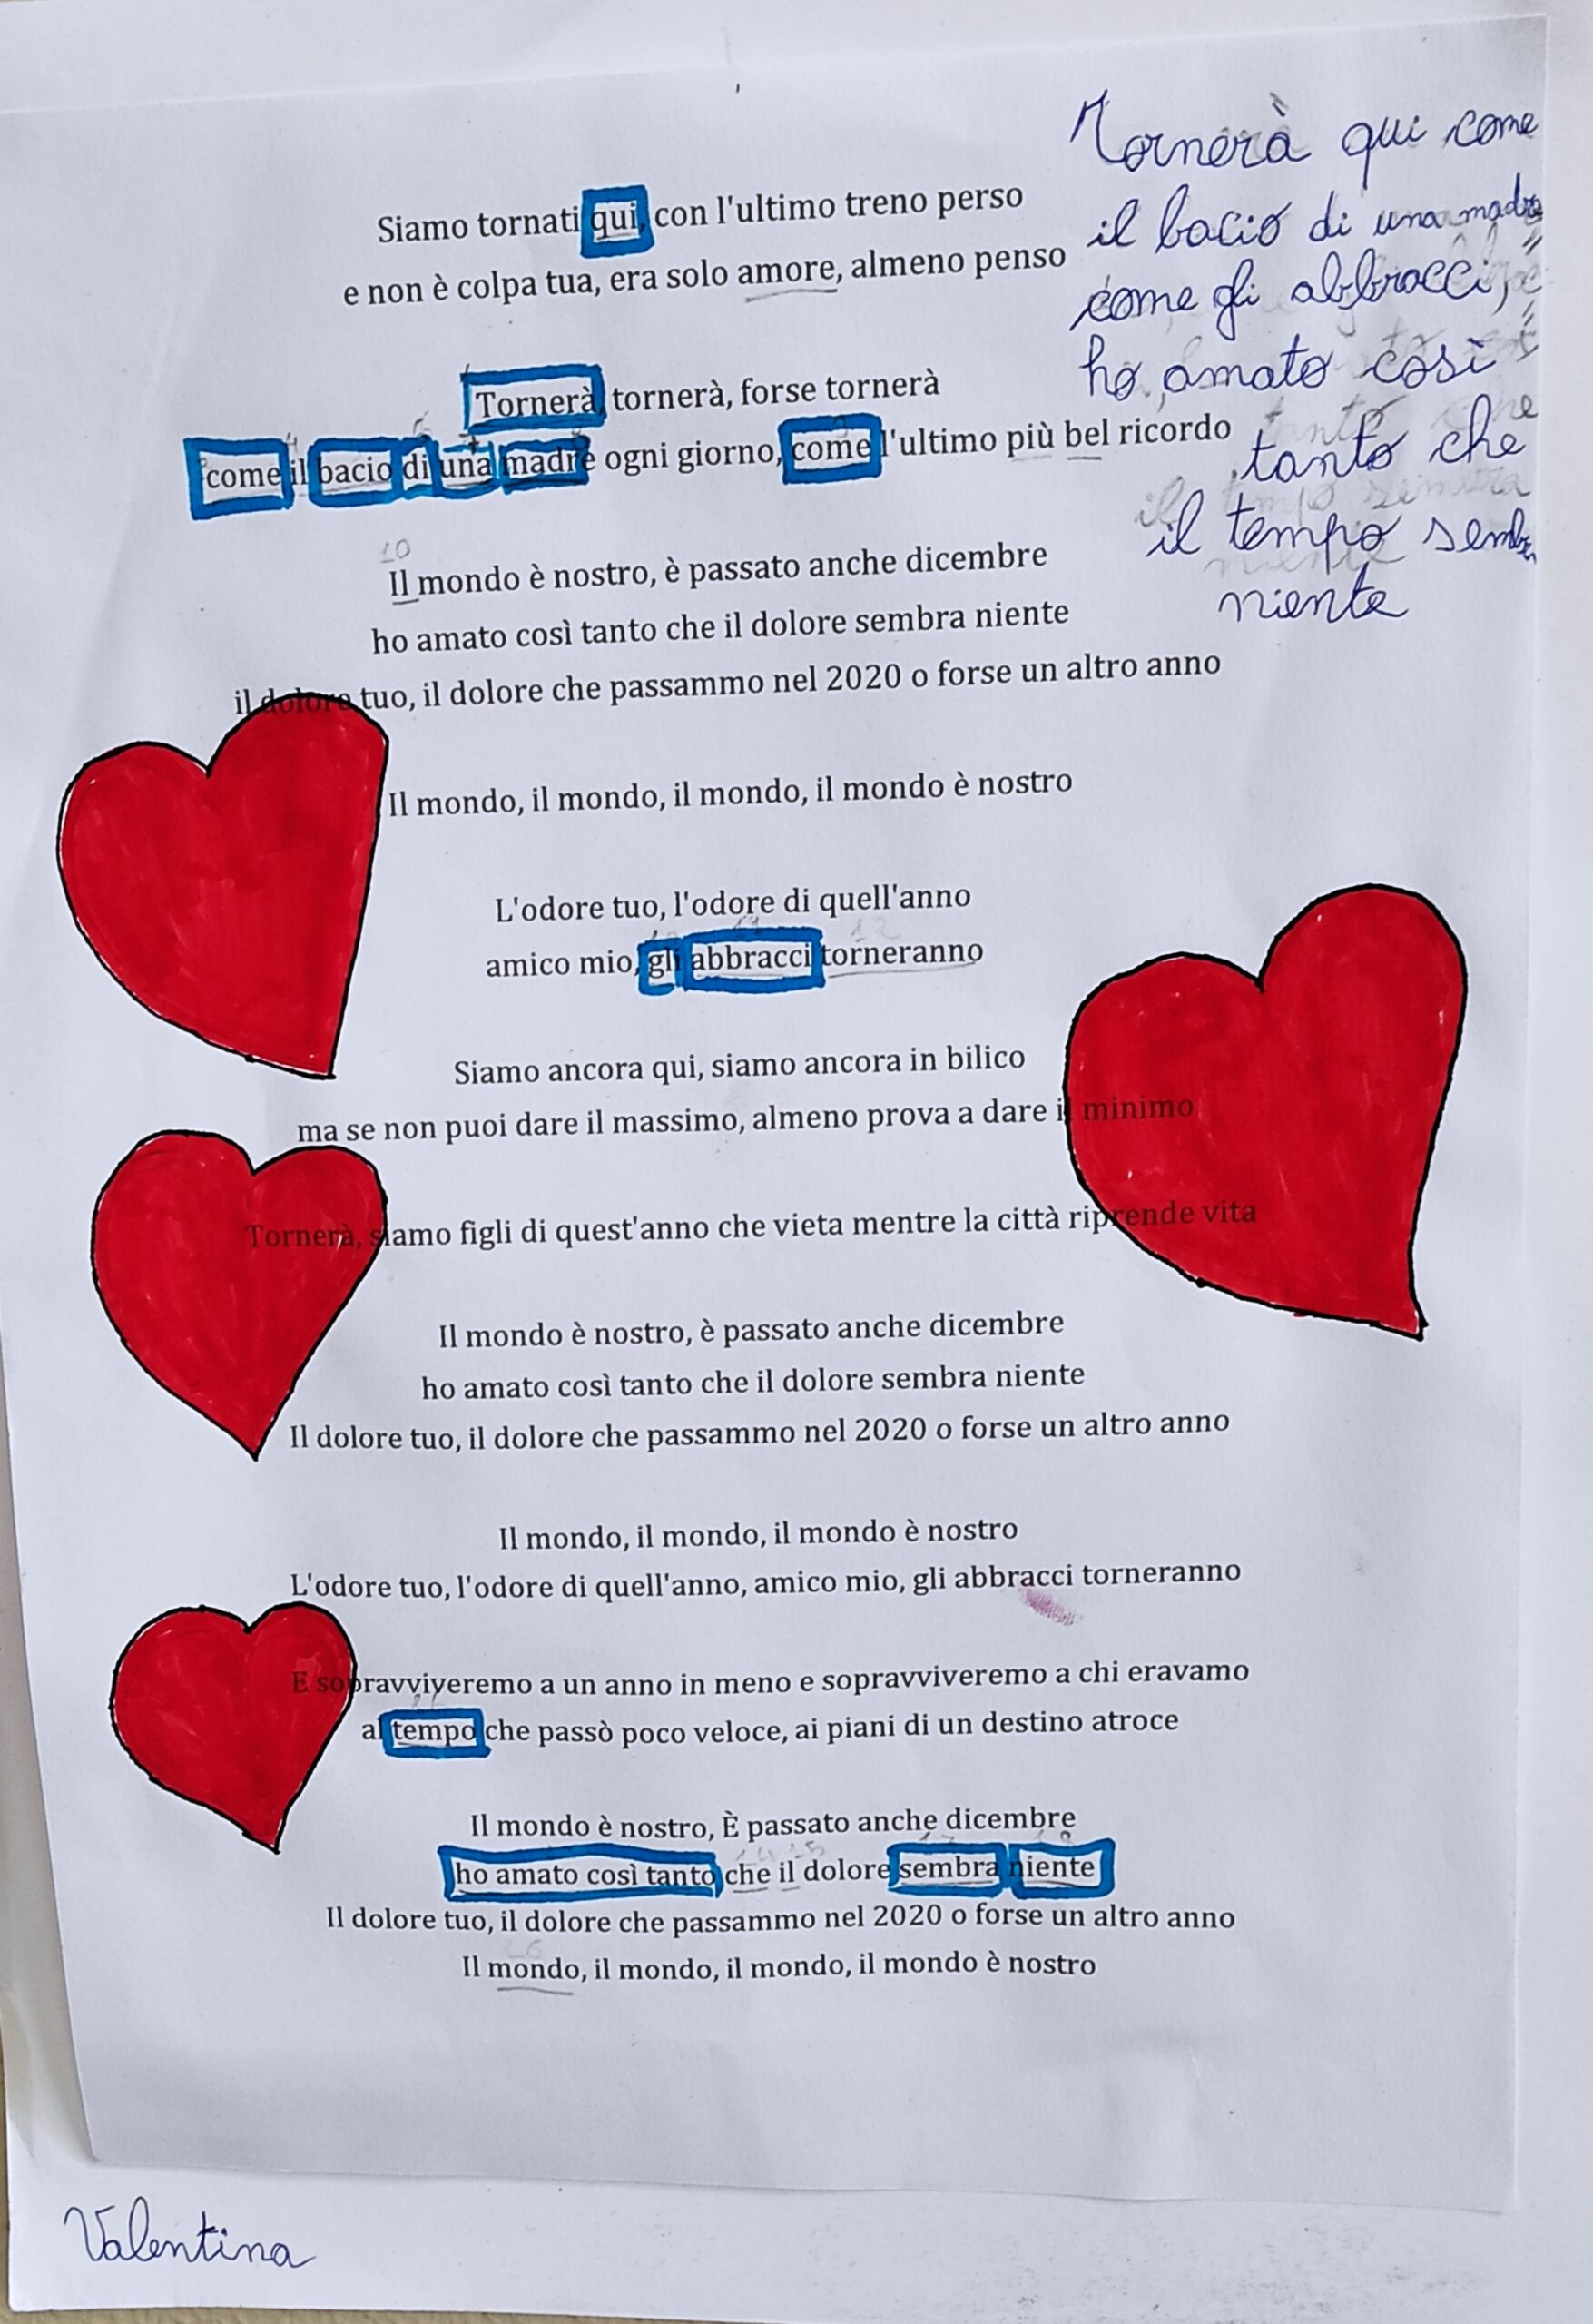 Tornerà qui come
il bacio di una madre
come gli abbracci,
ho amato così
tanto che
il tempo sembra
niente
Siamo tornati qui, con l'ultimo treno perso
e non è colpa tua, era solo amore, almeno penso
Tornerà, tornerà, forse tornerà
come il bacio di una madre ogni giorno, come l'ultimo più bel ricordo
10
Il mondo è nostro, è passato anche dicembre
ho amato così tanto che il dolore sembra niente
il dolore tuo, il dolore che passammo nel 2020 o forse un altro anno
Il mondo, il mondo, il mondo, il mondo è nostro
L'odore tuo, l'odore di quell'anno
amico mio, gli abbracci torneranno
Siamo ancora qui, siamo ancora in bilico
ma se non puoi dare il massimo, almeno prova a dare il minimo
Tornerà, siamo figli di quest'anno che vieta mentre la città riprende vita
Il mondo è nostro, è passato anche dicembre
ho amato così tanto che il dolore sembra niente
Il dolore tuo, il dolore che passammo nel 2020 o forse un altro anno
Il mondo, il mondo, il mondo è nostro
L'odore tuo, l'odore di quell'anno, amico mio, gli abbracci torneranno
E sopravviveremo a un anno in meno e sopravviveremo a chi eravamo
al tempo che passò poco veloce, ai piani di un destino atroce
Il mondo è nostro, È passato anche dicembre
ho amato così tanto che il dolore sembra niente
Il dolore tuo, il dolore che passammo nel 2020 o forse un altro anno
Il mondo, il mondo, il mondo, il mondo è nostro
Valentina